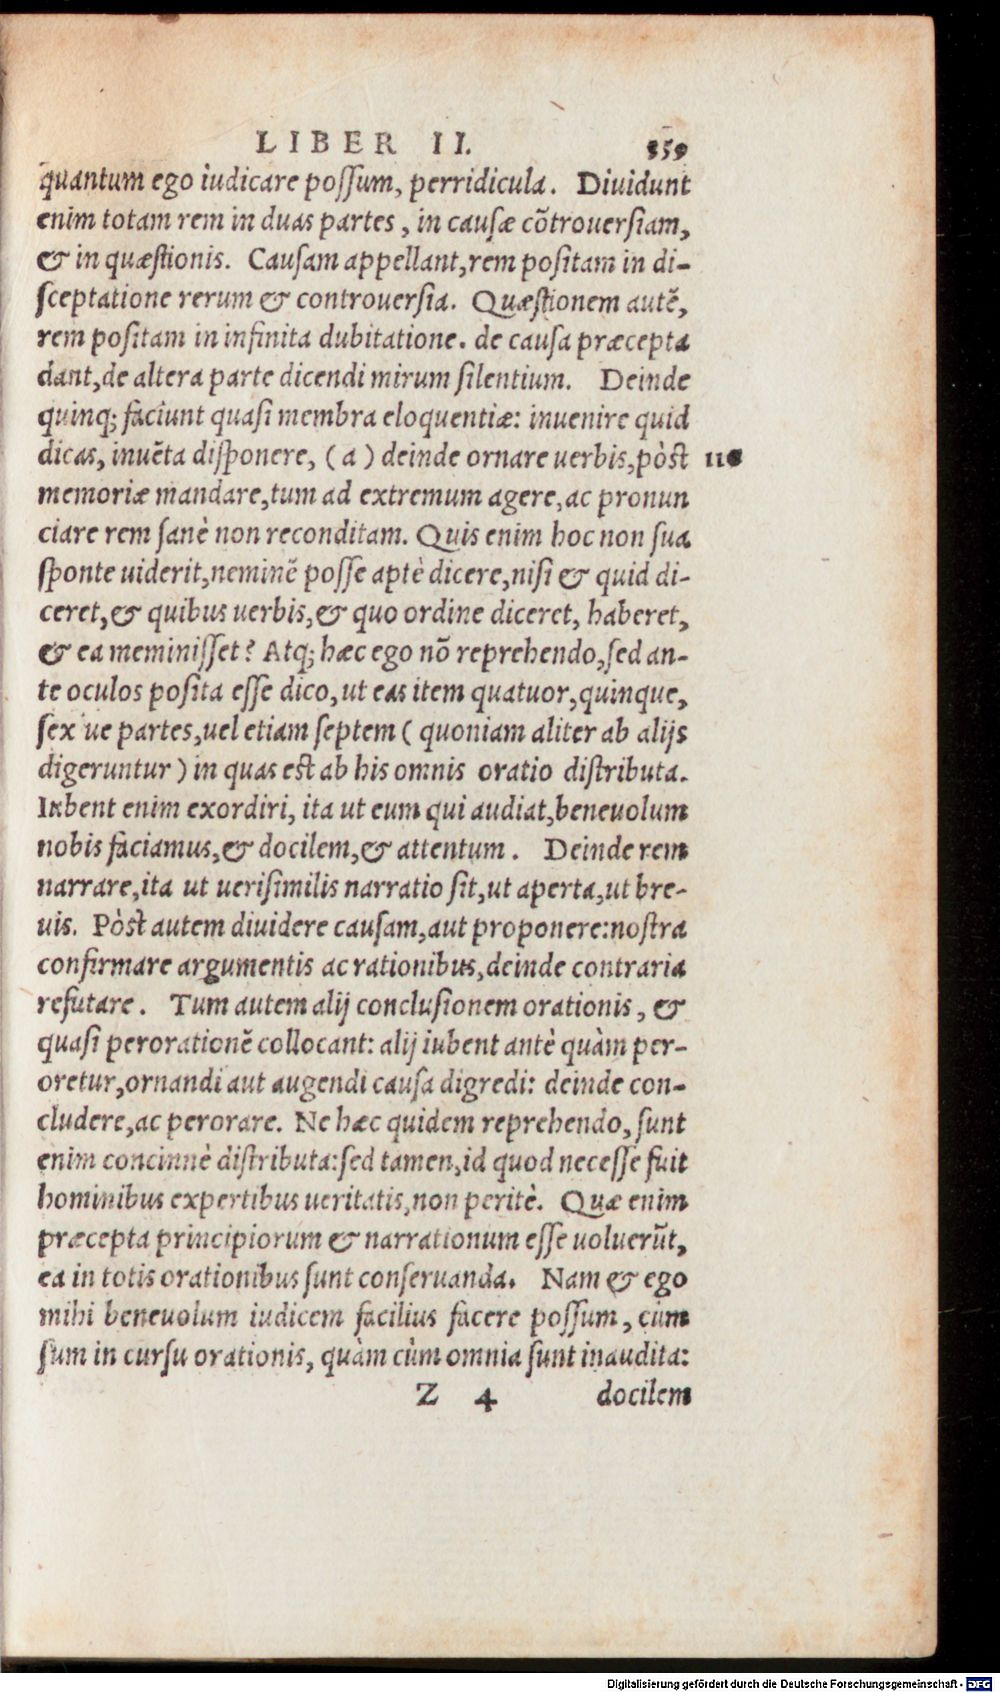 LIBER II. 359
quantum ego iudicare possum, perridicula. Diuidunt
enim totam rem in duas partes, in causæ cõtrouersiam,
& in quæstionis. Causam appellant, rem positam in di-
sceptatione rerum & controuersia. Quæstionem autẽ,
rem positam in infinita dubitatione. de causa præcepta
dant, de altera parte dicendi mirum silentium. Deinde
quinq; faciunt quasi membra eloquentiæ: inuenire quid
dicas, inuẽta disponere, (a) deinde ornare uerbis, pòst
memoriæ mandare, tum ad extremum agere, ac pronun
ciare rem sanè non reconditam. Quis enim hoc non sua
sponte uiderit, neminẽ posse aptè dicere, nisi & quid di-
ceret, & quibus uerbis, & quo ordine diceret, haberet,
& ea meminisset? Atq; hæc ego nõ reprehendo, sed an-
te oculos posita esse dico, ut eas item quatuor, quinque,
sex ue partes, uel etiam septem (quoniam aliter ab alijs
digeruntur) in quas est ab his omnis oratio distributa.
Iubent enim exordiri, ita ut eum qui audiat, beneuolum
nobis faciamus, & docilem, & attentum. Deinde rem
narrare, ita ut uerisimilis narratio sit, ut aperta, ut bre-
uis. Pòst autem diuidere causam, aut proponere: nostra
confirmare argumentis ac rationibus, deinde contraria
refutare. Tum autem alij conclusionem orationis, &
quasi perorationẽ collocant: alij iubent antè quàm per-
oretur, ornandi aut augendi causa digredi: deinde con-
cludere, ac perorare. Ne hæc quidem reprehendo, sunt
enim concinnè distributa: sed tamen, id quod necesse fuit
hominibus expertibus ueritatis, non peritè. Quæ enim
præcepta principiorum & narrationum esse uoluerũt,
ea in totis orationibus sunt conseruanda. Nam & ego
mihi beneuolum iudicem facilius facere possum, cùm
sum in cursu orationis, quàm cùm omnia sunt inaudita:
Z 4 docilem
Digitalisierung gefördert durch die Deutsche Forschungsgemeinschaft - DFG